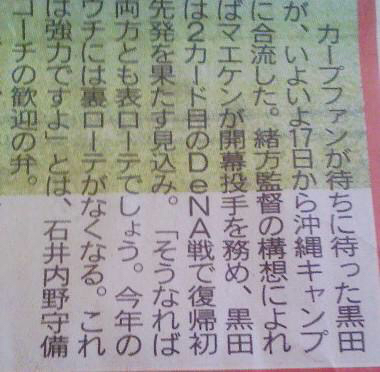 カープファンが待ちに待った黒田
が、いよいよ17日から沖縄キャンプ
に合流した。緒方監督の構想によれ
ばマエケンが開幕投手を務め、黒田
は2カード目のDeNA戦で復帰初
先発を果たす見込み。「そうなれば
両方とも表ローテでしょう。今年の
ウチには裏ローテがなくなる。これ
は強力ですよ」とは、石井内野守備
コーチの歓迎の弁。